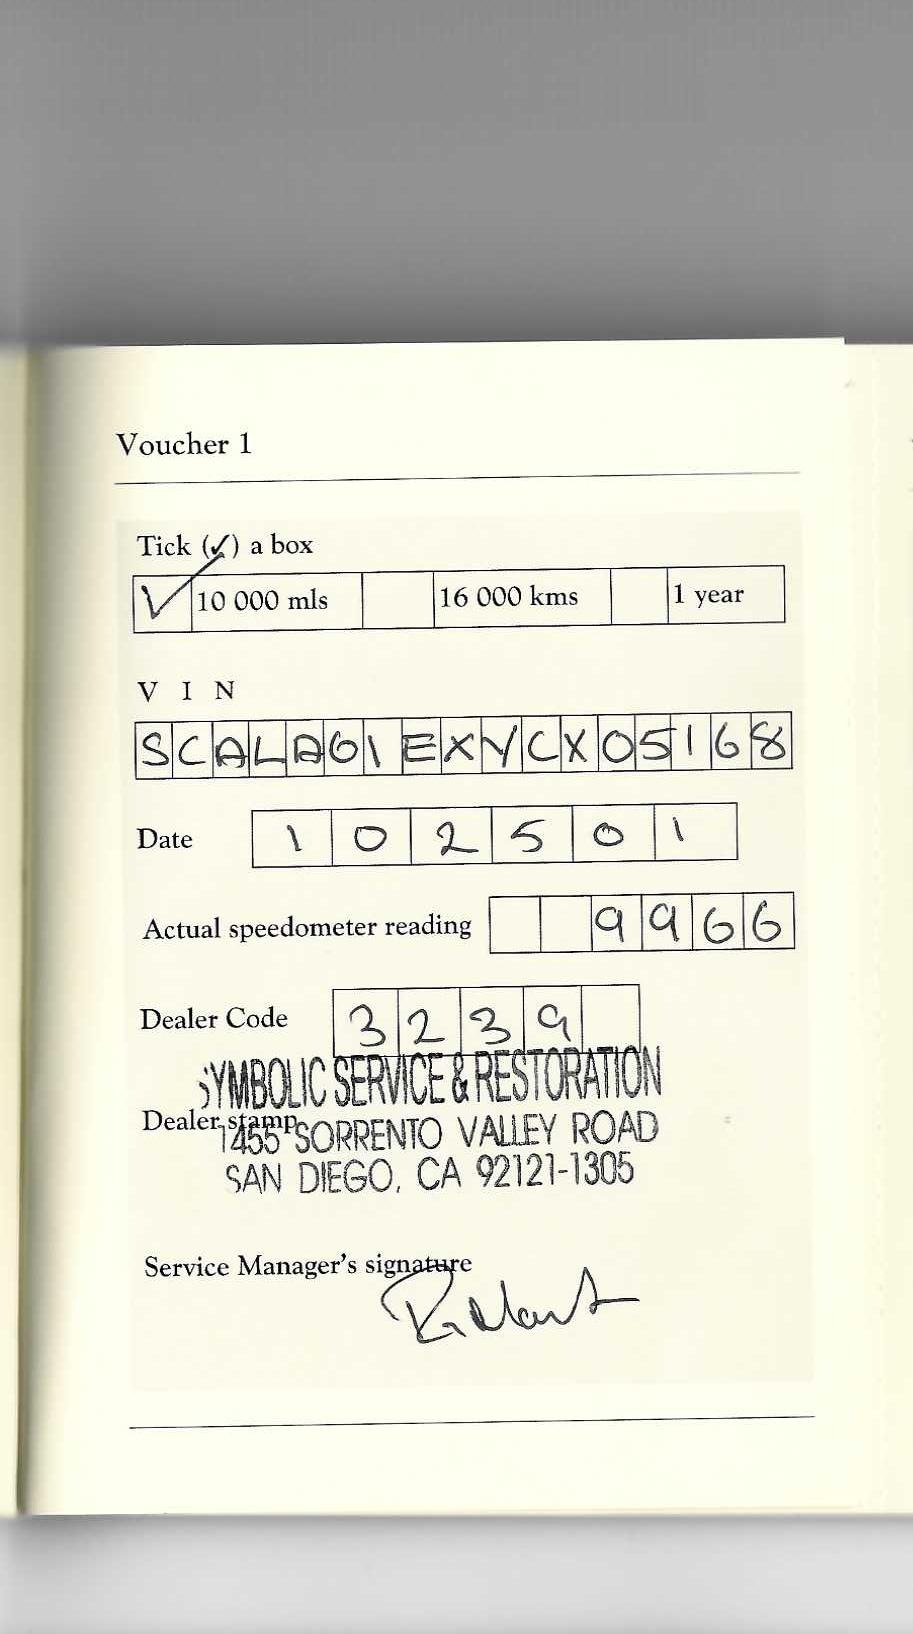 Voucher 1
Tick (✓) a box
✓ 10 000 mls 16 000 kms 1 year
V I N
SCALA61EXYCX05168
Date 1 0 2 5 0 1
Actual speedometer reading 9 9 6 6
Dealer Code 3 2 3 9
SYMBOLIC SERVICE & RESTORATION
Dealer stamp
1455 SORRENTO VALLEY ROAD
SAN DIEGO, CA 92121-1305
Service Manager's signature